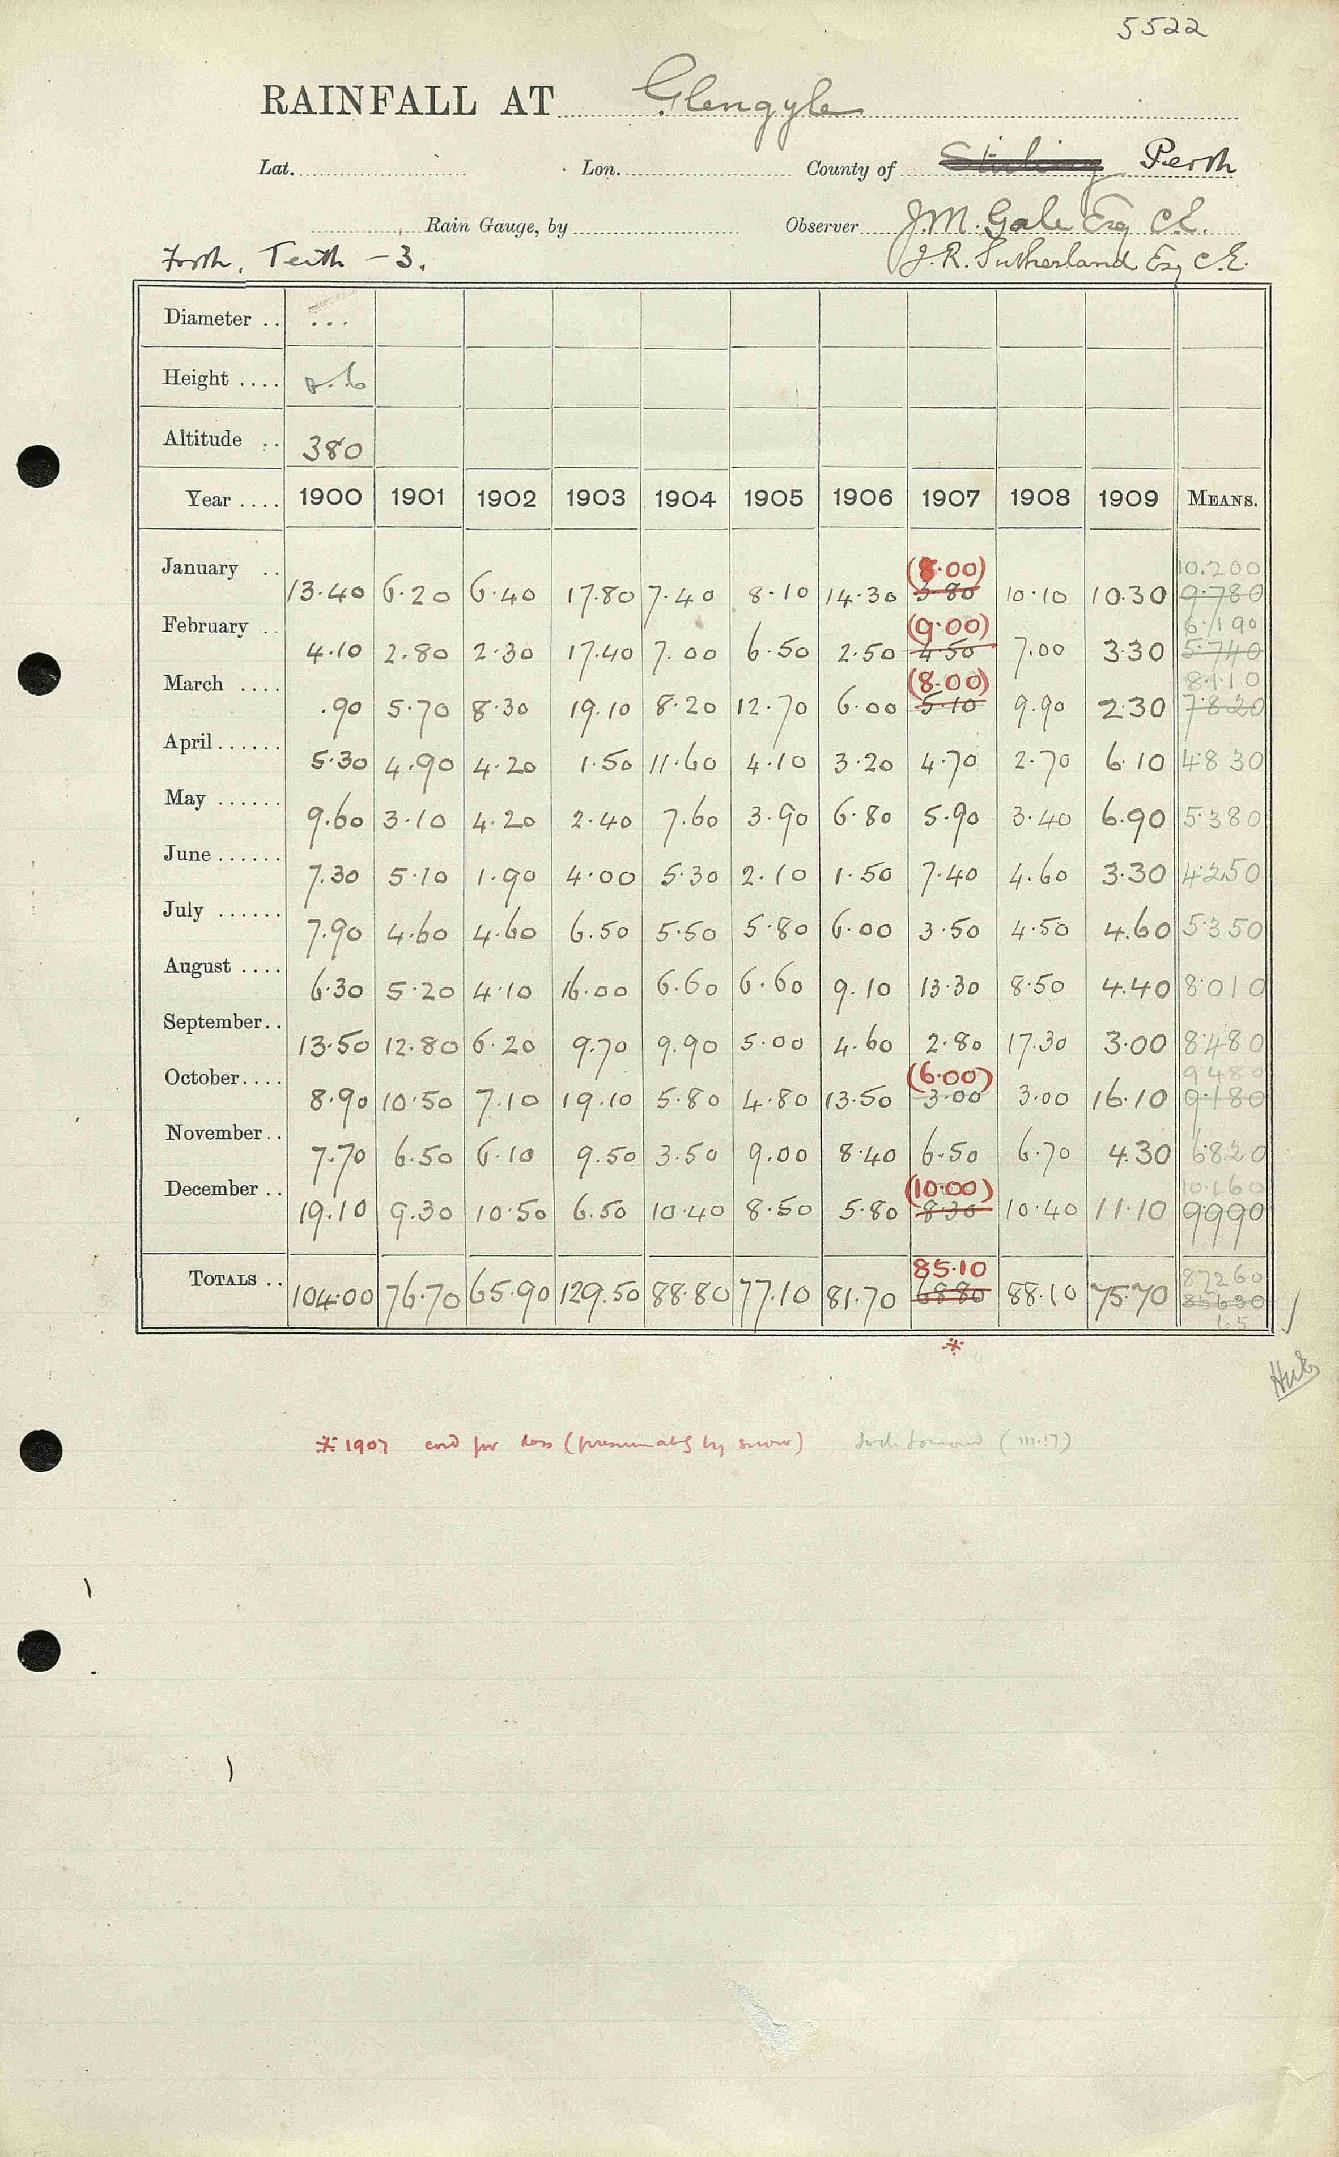 5522
RAINFALL AT Glengyle
Lat. Lon. County of Stirling Perth
Rain Gauge, by Observer J.M. Gale Esq C.E.
Forth, Teith - 3. J.R. Sutherland Esq C.E.
Diameter .. ...
Height ....
Altitude .. 380
Year .... 1900 1901 1902 1903 1904 1905 1906 1907 1908 1909 MEANS.
(8.00) 10.200
January .. 13.40 6.20 6.40 17.80 7.40 8.10 14.30 3.80 10.10 10.30 9.780
(9.00) 6.190
February .. 4.10 2.80 2.30 17.40 7.00 6.50 2.50 4.50 7.00 3.30 5.740
(8.00) 8.110
March .... .90 5.70 8.30 19.10 8.20 12.70 6.00 5.10 9.90 2.30 7.820
April...... 5.30 4.90 4.20 1.50 11.60 4.10 3.20 4.70 2.70 6.10 4.830
May ...... 9.60 3.10 4.20 2.40 7.60 3.90 6.80 5.90 3.40 6.90 5.380
June...... 7.30 5.10 1.90 4.00 5.30 2.10 1.50 7.40 4.60 3.30 4.250
July ...... 7.90 4.60 4.60 6.50 5.50 5.80 6.00 3.50 4.50 4.60 5.350
August .... 6.30 5.20 4.10 16.00 6.60 6.60 9.10 13.30 8.50 4.40 8.010
September.. 13.50 12.80 6.20 9.70 9.90 5.00 4.60 2.80 17.30 3.00 8.480
(6.00) 9480
October.... 8.90 10.50 7.10 19.10 5.80 4.80 13.50 3.00 3.00 16.10 9.180
November.. 7.70 6.50 6.10 9.50 3.50 9.00 8.40 6.50 6.70 4.30 6.820
(10.00) 10.160
December .. 19.10 9.30 10.50 6.50 10.40 8.50 5.80 8.30 10.40 11.10 9.990
85.10 87260
TOTALS .. 104.00 76.70 65.90 129.50 88.80 77.10 81.70 68.80 88.10 75.70 85630
*
* 1907 cord for loss (presumably by snow)